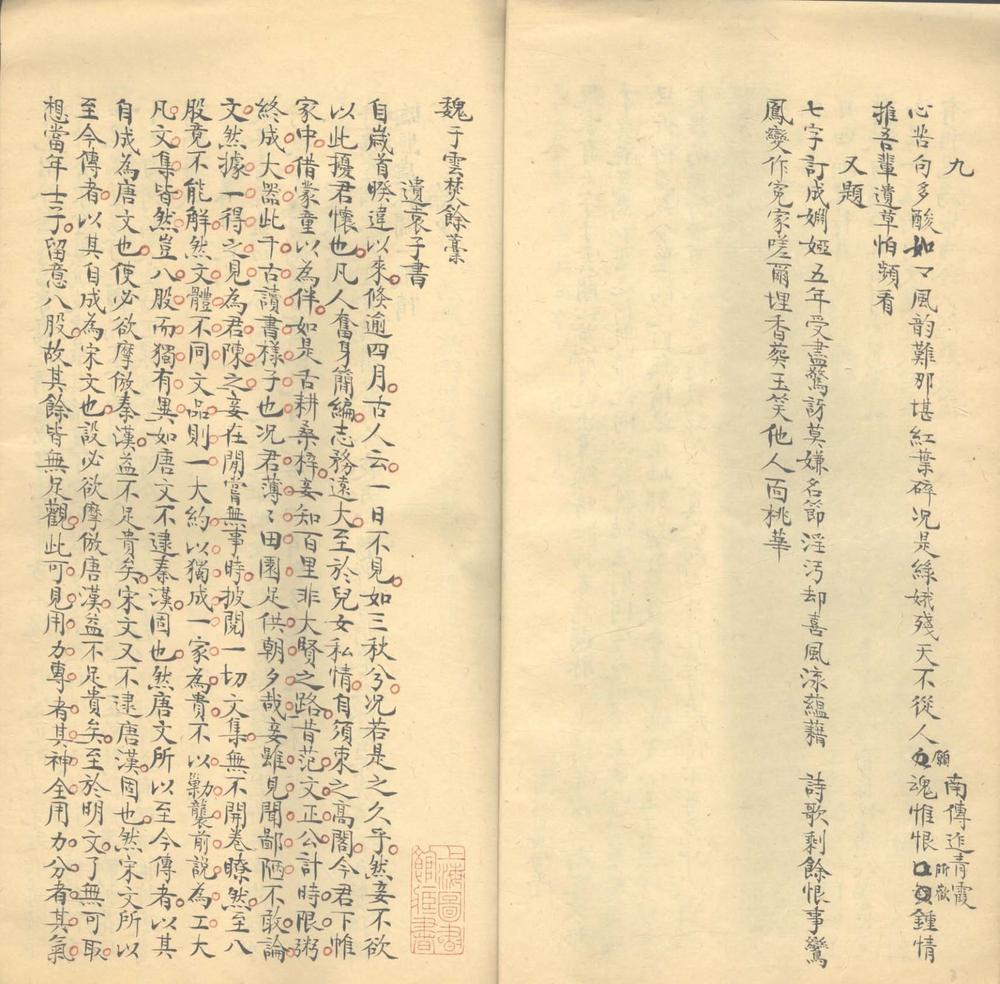 九
南傳近青霞
心苦句多酸如〻風韵難那堪紅葉碎况是綵娥殘天不從人願魂惟恨所歡鍾情
推吾輩遺草怕頻看
又題
七字訂成嫻婭五年受盡驚訝莫嫌名節淫汚却喜風流蘊藉　詩歌剩餘恨事鸞
鳳變作寃家嗟爾埋香葬玉笑他人面桃華
魏于雲焚餘藁
遺袁子書
上海圖書館藏書
自歲首暌違以來倐逾四月古人云一日不見如三秋兮况若是之久乎然妾不欲
以此擾君懷也凡人奮身簡編志務遠大至於兒女私情自須束之高閣今君下帷
家中借蒙童以為伴如是舌耕桑梓妾知百里非大賢之路昔范文正公計時限粥
終成大器此千古讀書樣子也况君薄〻田園足供朝夕哉妾雖見聞鄙陋不敢論
文然據一得之見為君陳之妾在閒嘗無事時披閱一切文集無不開卷瞭然至八
股竟不能解然文體不同文品則一大約以獨成一家為貴不以勦襲前説為工大
凡文集皆然豈八股而獨有異如唐文不逮秦漢固也然唐文所以至今傳者以其
自成為唐文也便必欲摩倣秦漢益不足貴矣宋文又不逮唐漢固也然宋文所以
至今傳者以其自成為宋文也設必欲摩倣唐漢益不足貴矣至於明文了無可取
想當年士子留意八股故其餘皆無足觀此可見用力專者其神全用力分者其氣